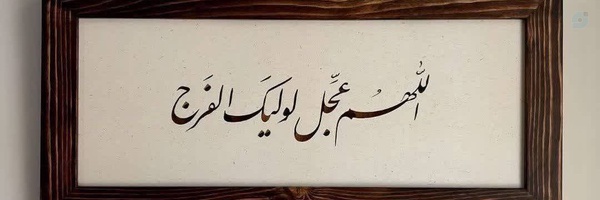 اللهُم عَجِّل لوليكَ الفَرَج